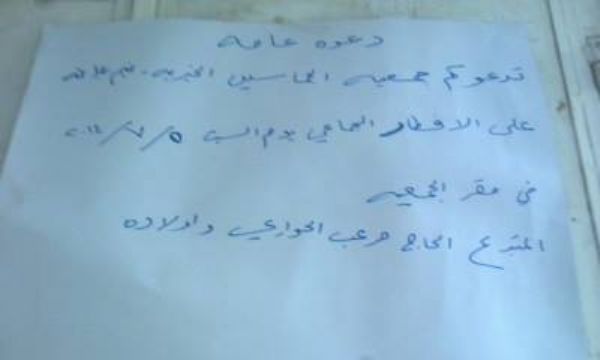 دعوه عامه
تدعوكم جمعيه الحاسين الخيريه
على الافطار الجماعي يوم السبت ٢٠١٤/٧/٥
في مقر الجمعيه
المتبرع الحاج مرعب الحوارعي واولاده